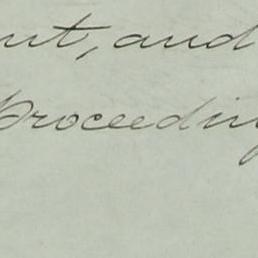 ut, and
Proceedin